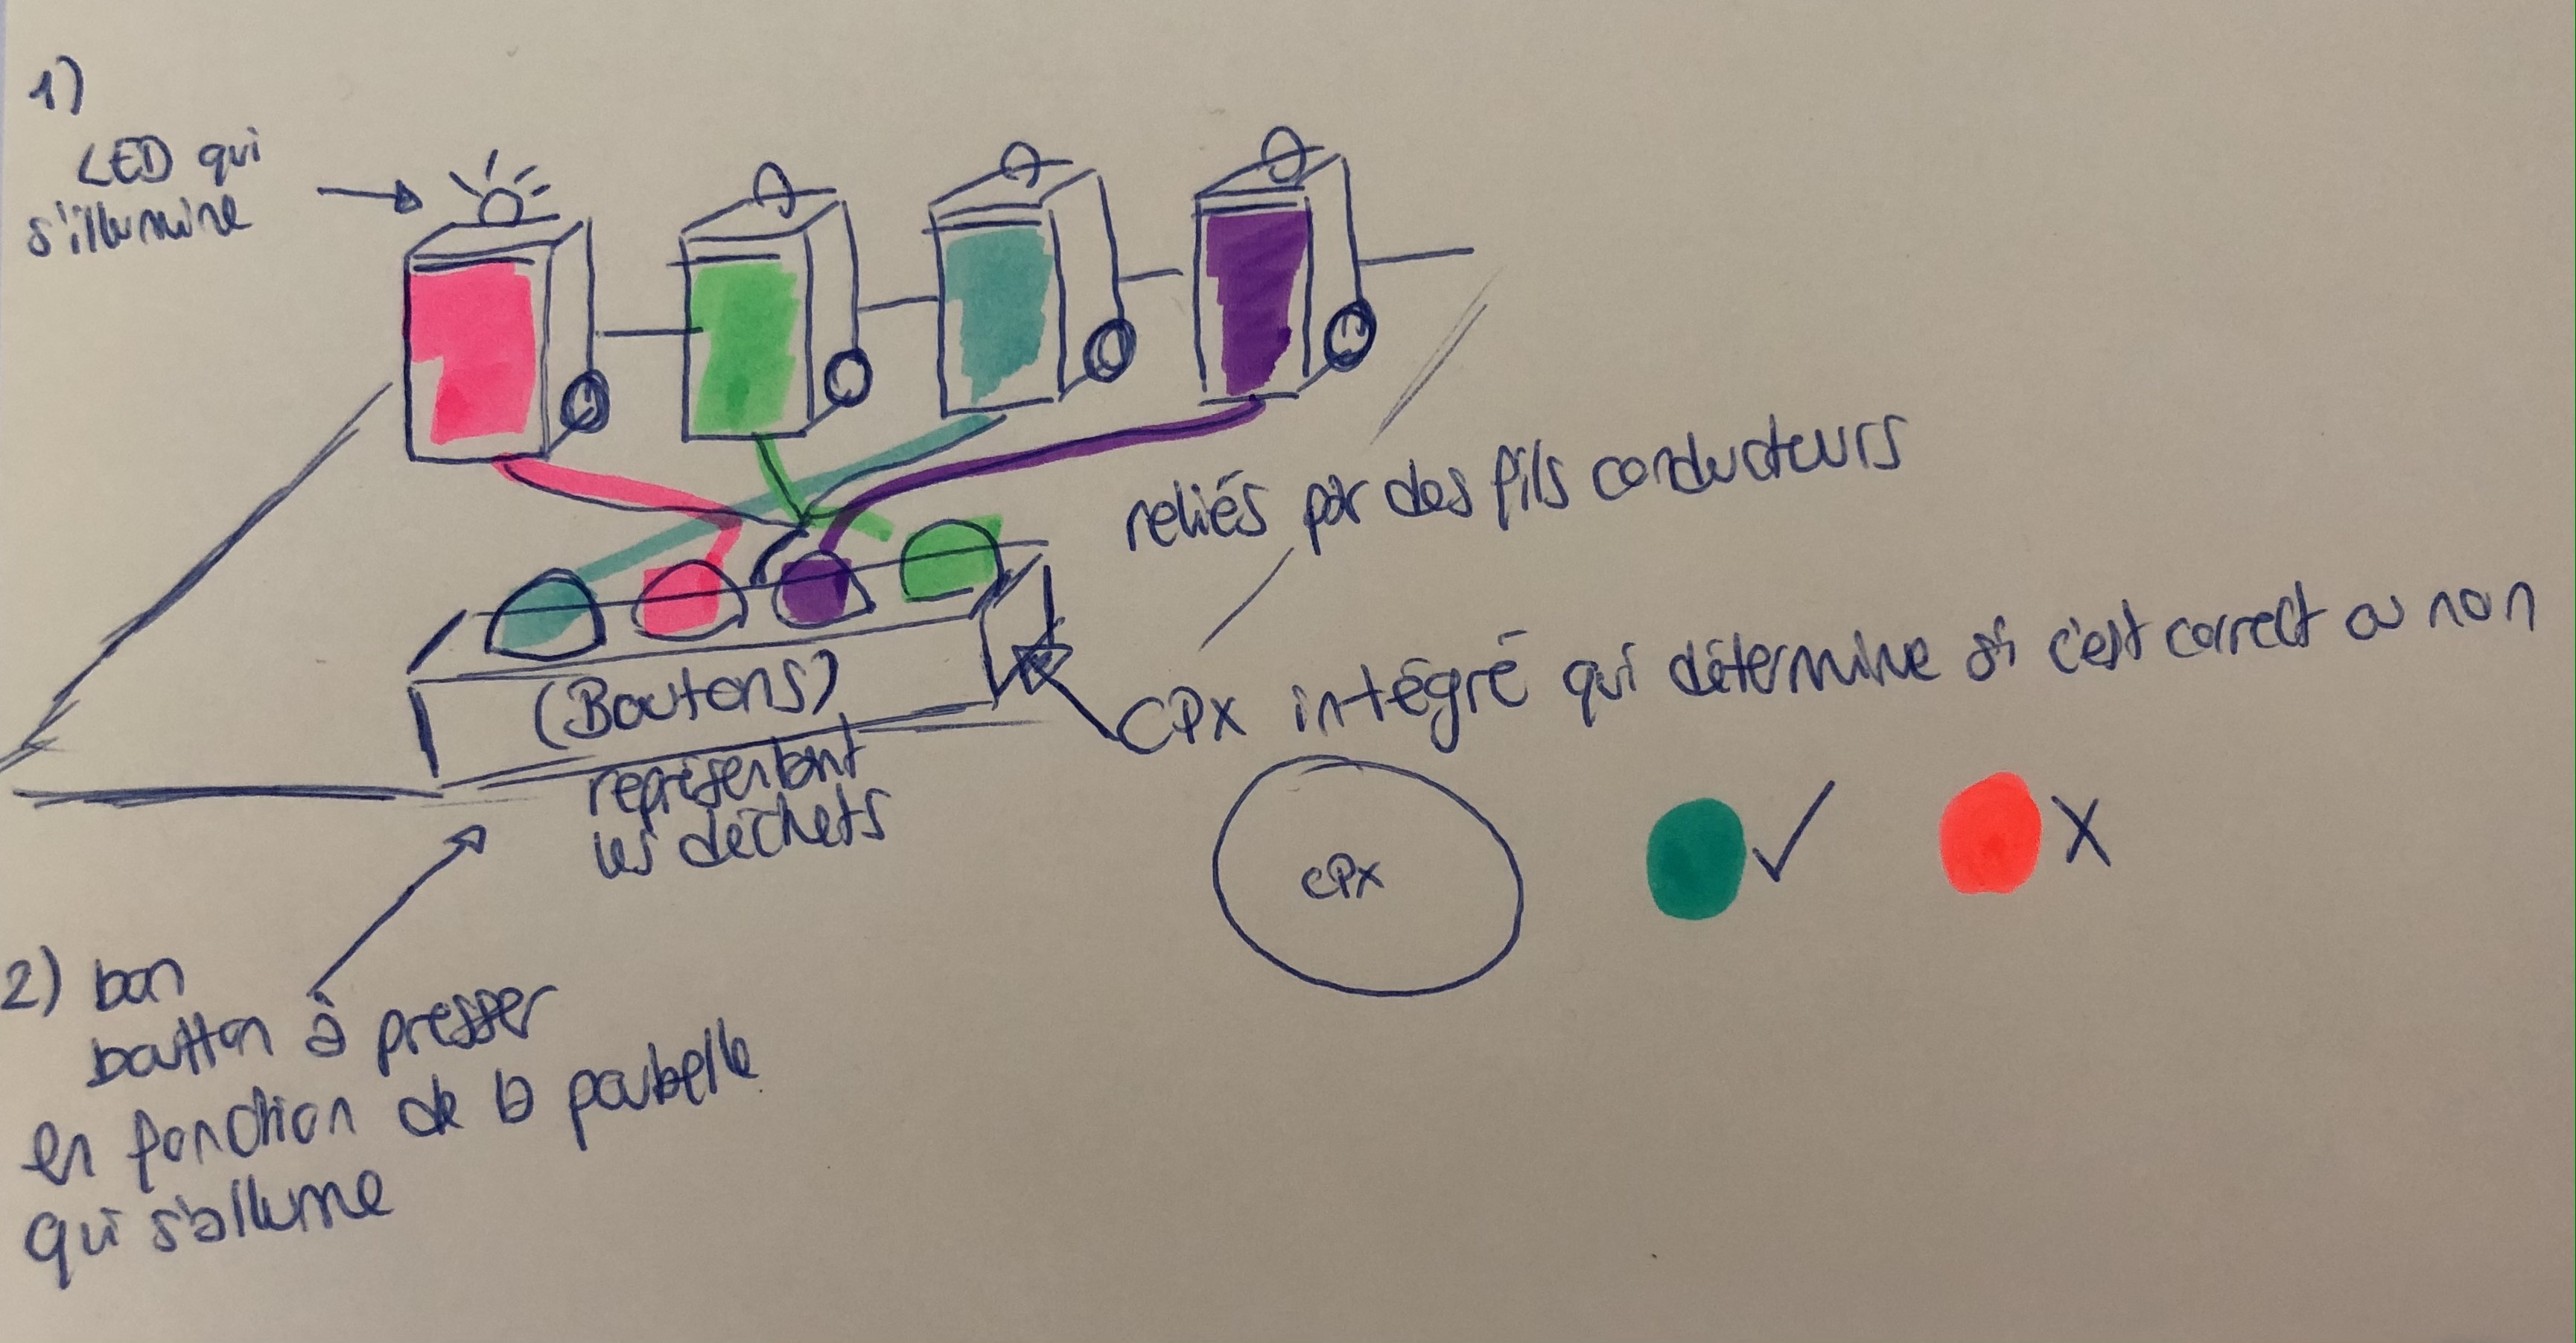 1)
LED qui
s'illumine
reliés par des fils conducteurs
(Boutons)
représentant
les déchets
CPX intégré qui détermine si c'est correct ou non
CPX
2) bon
boutton à presser
en fonction de la poubelle
qui s'allume